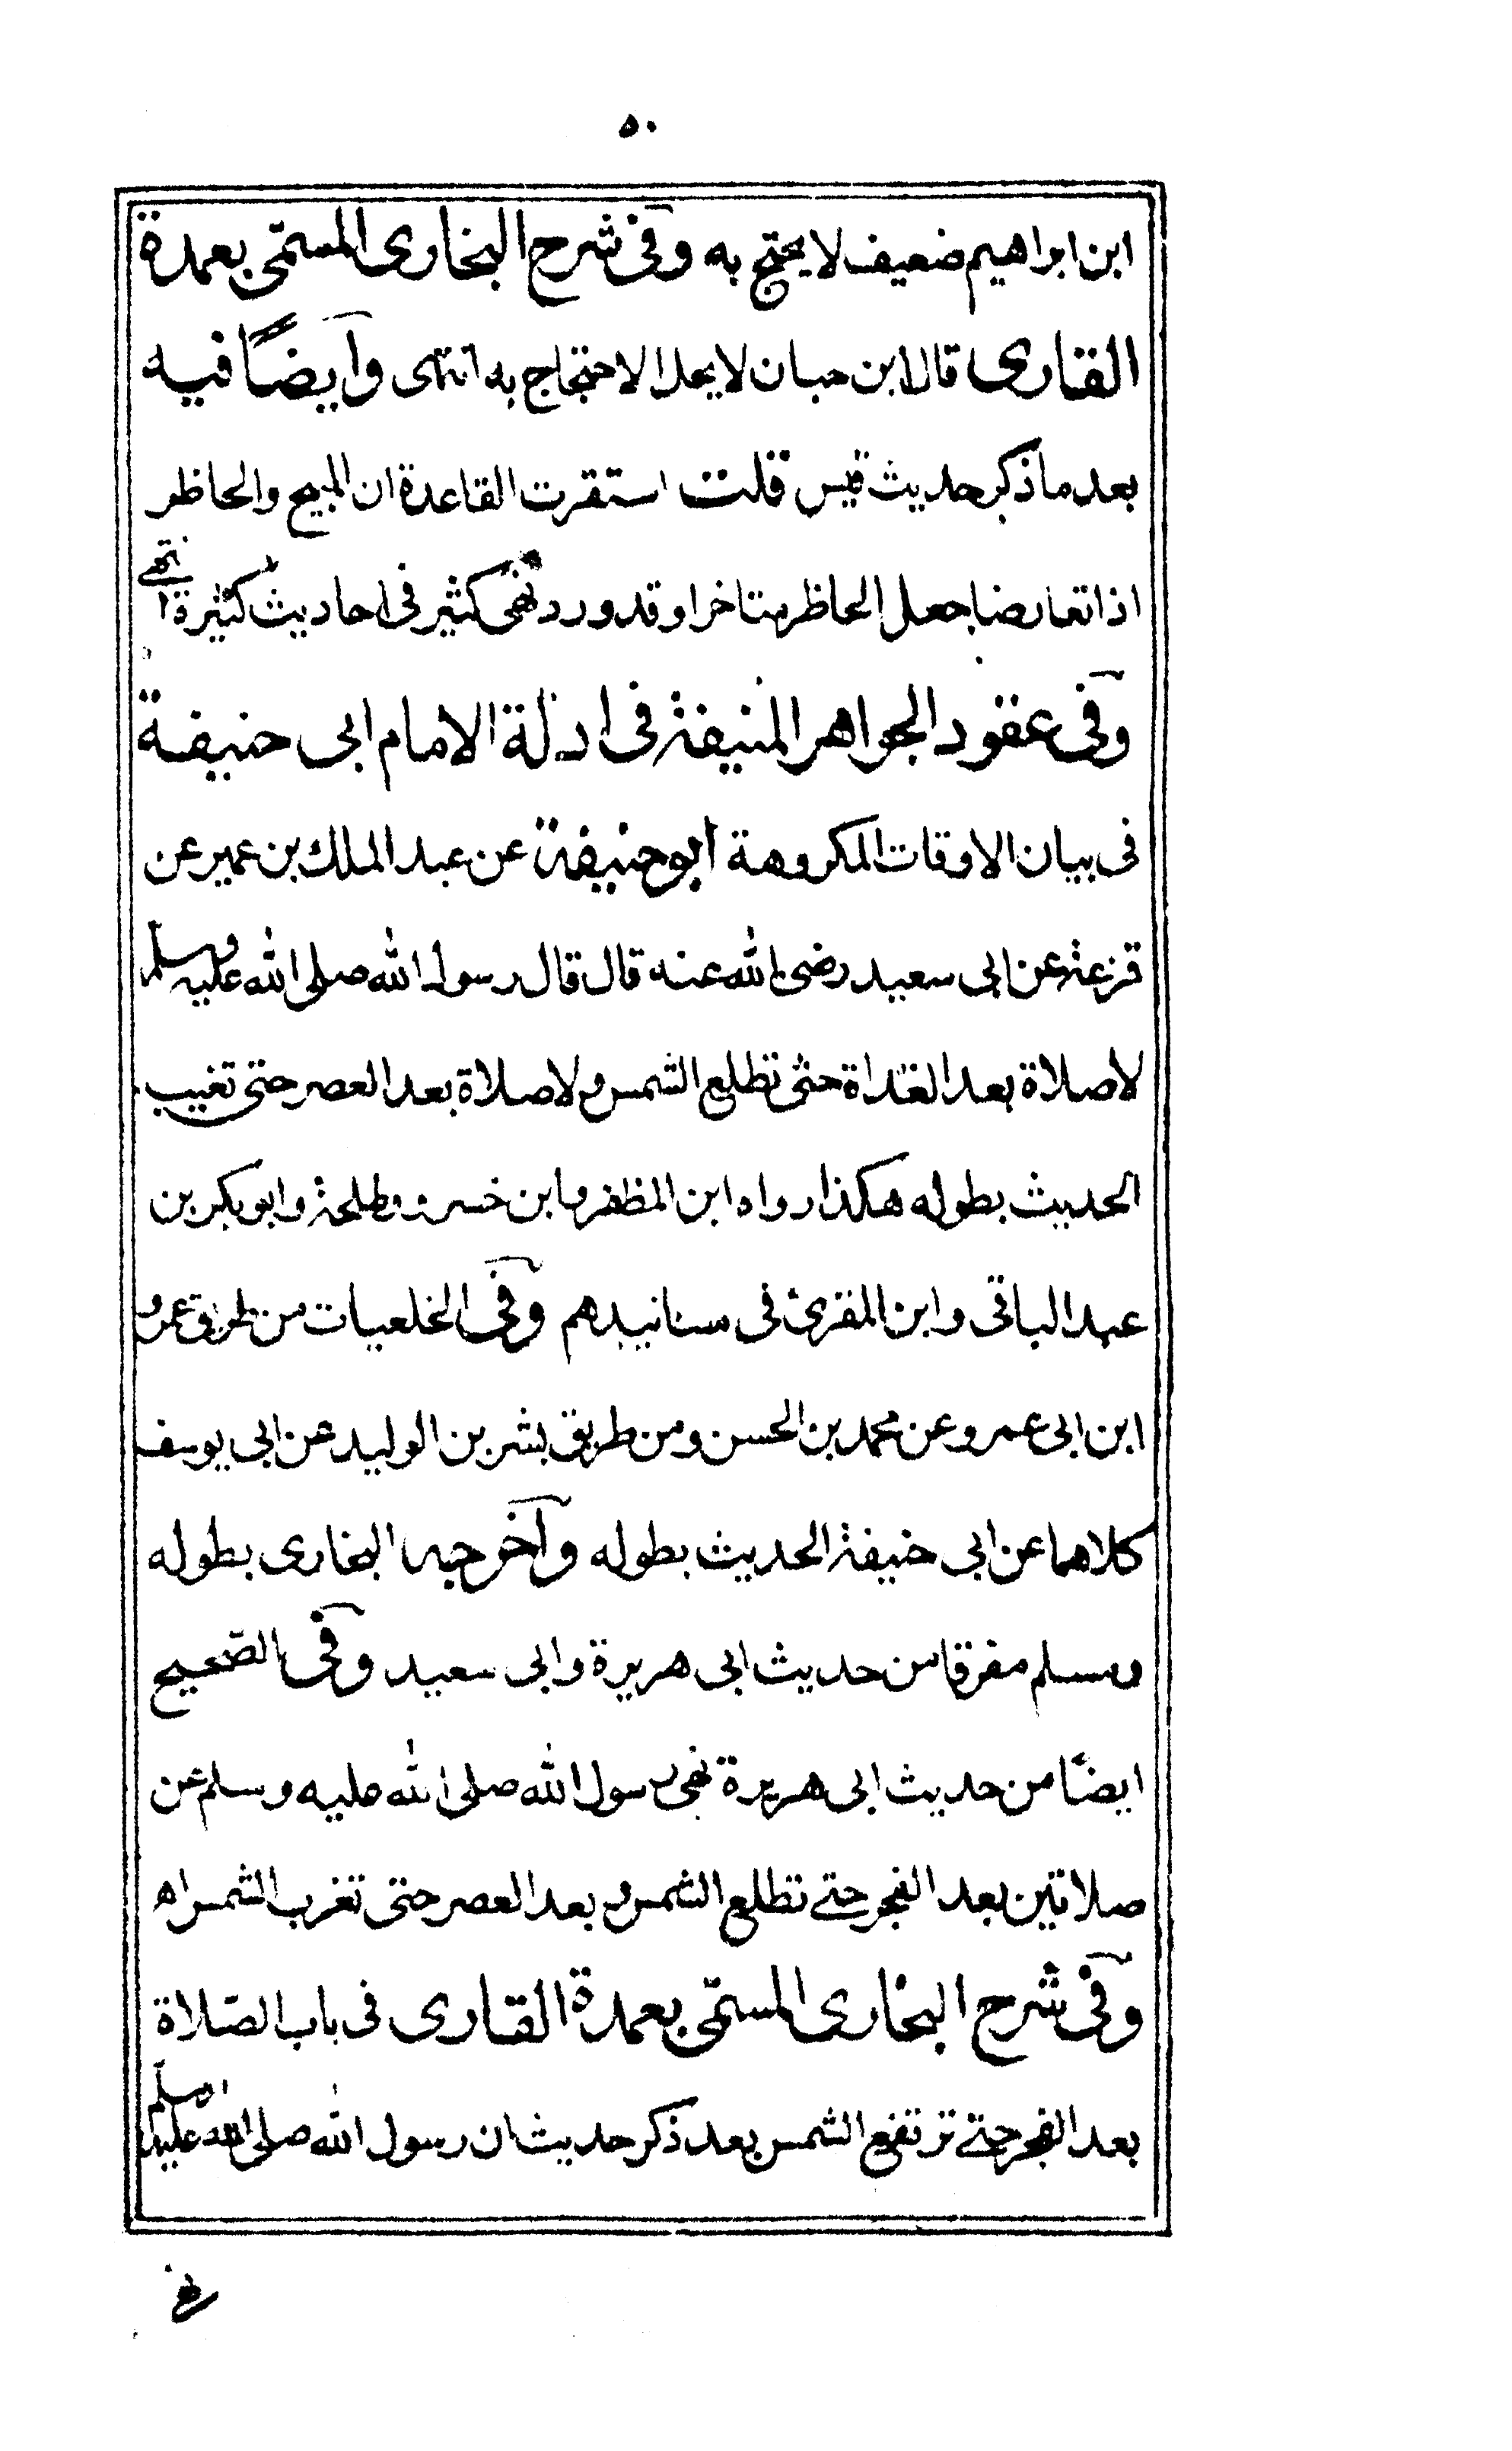 ٥٠
ابن ابراهيم ضعيف لا يحتج به وفى شرح البخارى المسمّى بعمدة
القارى قال ابن حبان لا يحل الاحتجاج به انتهى وايضًا فيه
بعد ما ذكر حديث قيس قلت استقرت القاعدة ان المبيح والحاظر
اذا تعارضا جعل الحاظر متاخرا وقد ورد نهى كثير فى احاديث كثيرة انتهى
وفى عقود الجواهر المنيفة فى ادلة الامام ابى حنيفة
فى بيان الاوقات المكروهة ابو حنيفة عن عبد الملك بن عمير عن
قزعة عن ابى سعيد رضى الله عنه قال قال رسول الله صلى الله عليه وسلم
لا صلاة بعد الغداة حتى تطلع الشمس ولا صلاة بعد العصر حتى تغيب
الحديث بطوله هكذا رواه ابن المظفر وابن خسرو وطلحة وابو بكر بن
عبد الباقى وابن المقرئ فى مسانيدهم وفى الخلعيات من طريق عمرو
ابن ابى عمرو عن محمد بن الحسن ومن طريق بشر بن الوليد عن ابى يوسف
كلاهما عن ابى حنيفة الحديث بطوله وآخرجه البخارى بطوله
ومسلم مفرقا من حديث ابى هريرة وابى سعيد وفى الصّحيح
ايضًا من حديث ابى هريرة نهى رسول الله صلى الله عليه وسلم عن
صلاتين بعد الفجر حتے تطلع الشمس وبعد العصر حتى تغرب الشمس اه
وفى شرح البخارى المسمّى بعمدة القارى فى باب الصّلاة
بعد الفجر حتے ترتفع الشمس بعد ذكر حديث ان رسول الله صلى الله عليه وسلم